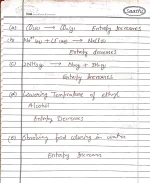 Saathi
(a) O2(s) → O2(g) Entropy Increases
(b) Na+(aq) + Cl-(aq) → NaCl(s)
Entropy decreases
(c) 2NH3(g) → N2(g) + 3H2(g)
Entropy Increases
(d) Lowering Temperature of ethyl
Alcohol
Entropy Decreases
(e) Dissolving food coloring in water
Entropy Increases